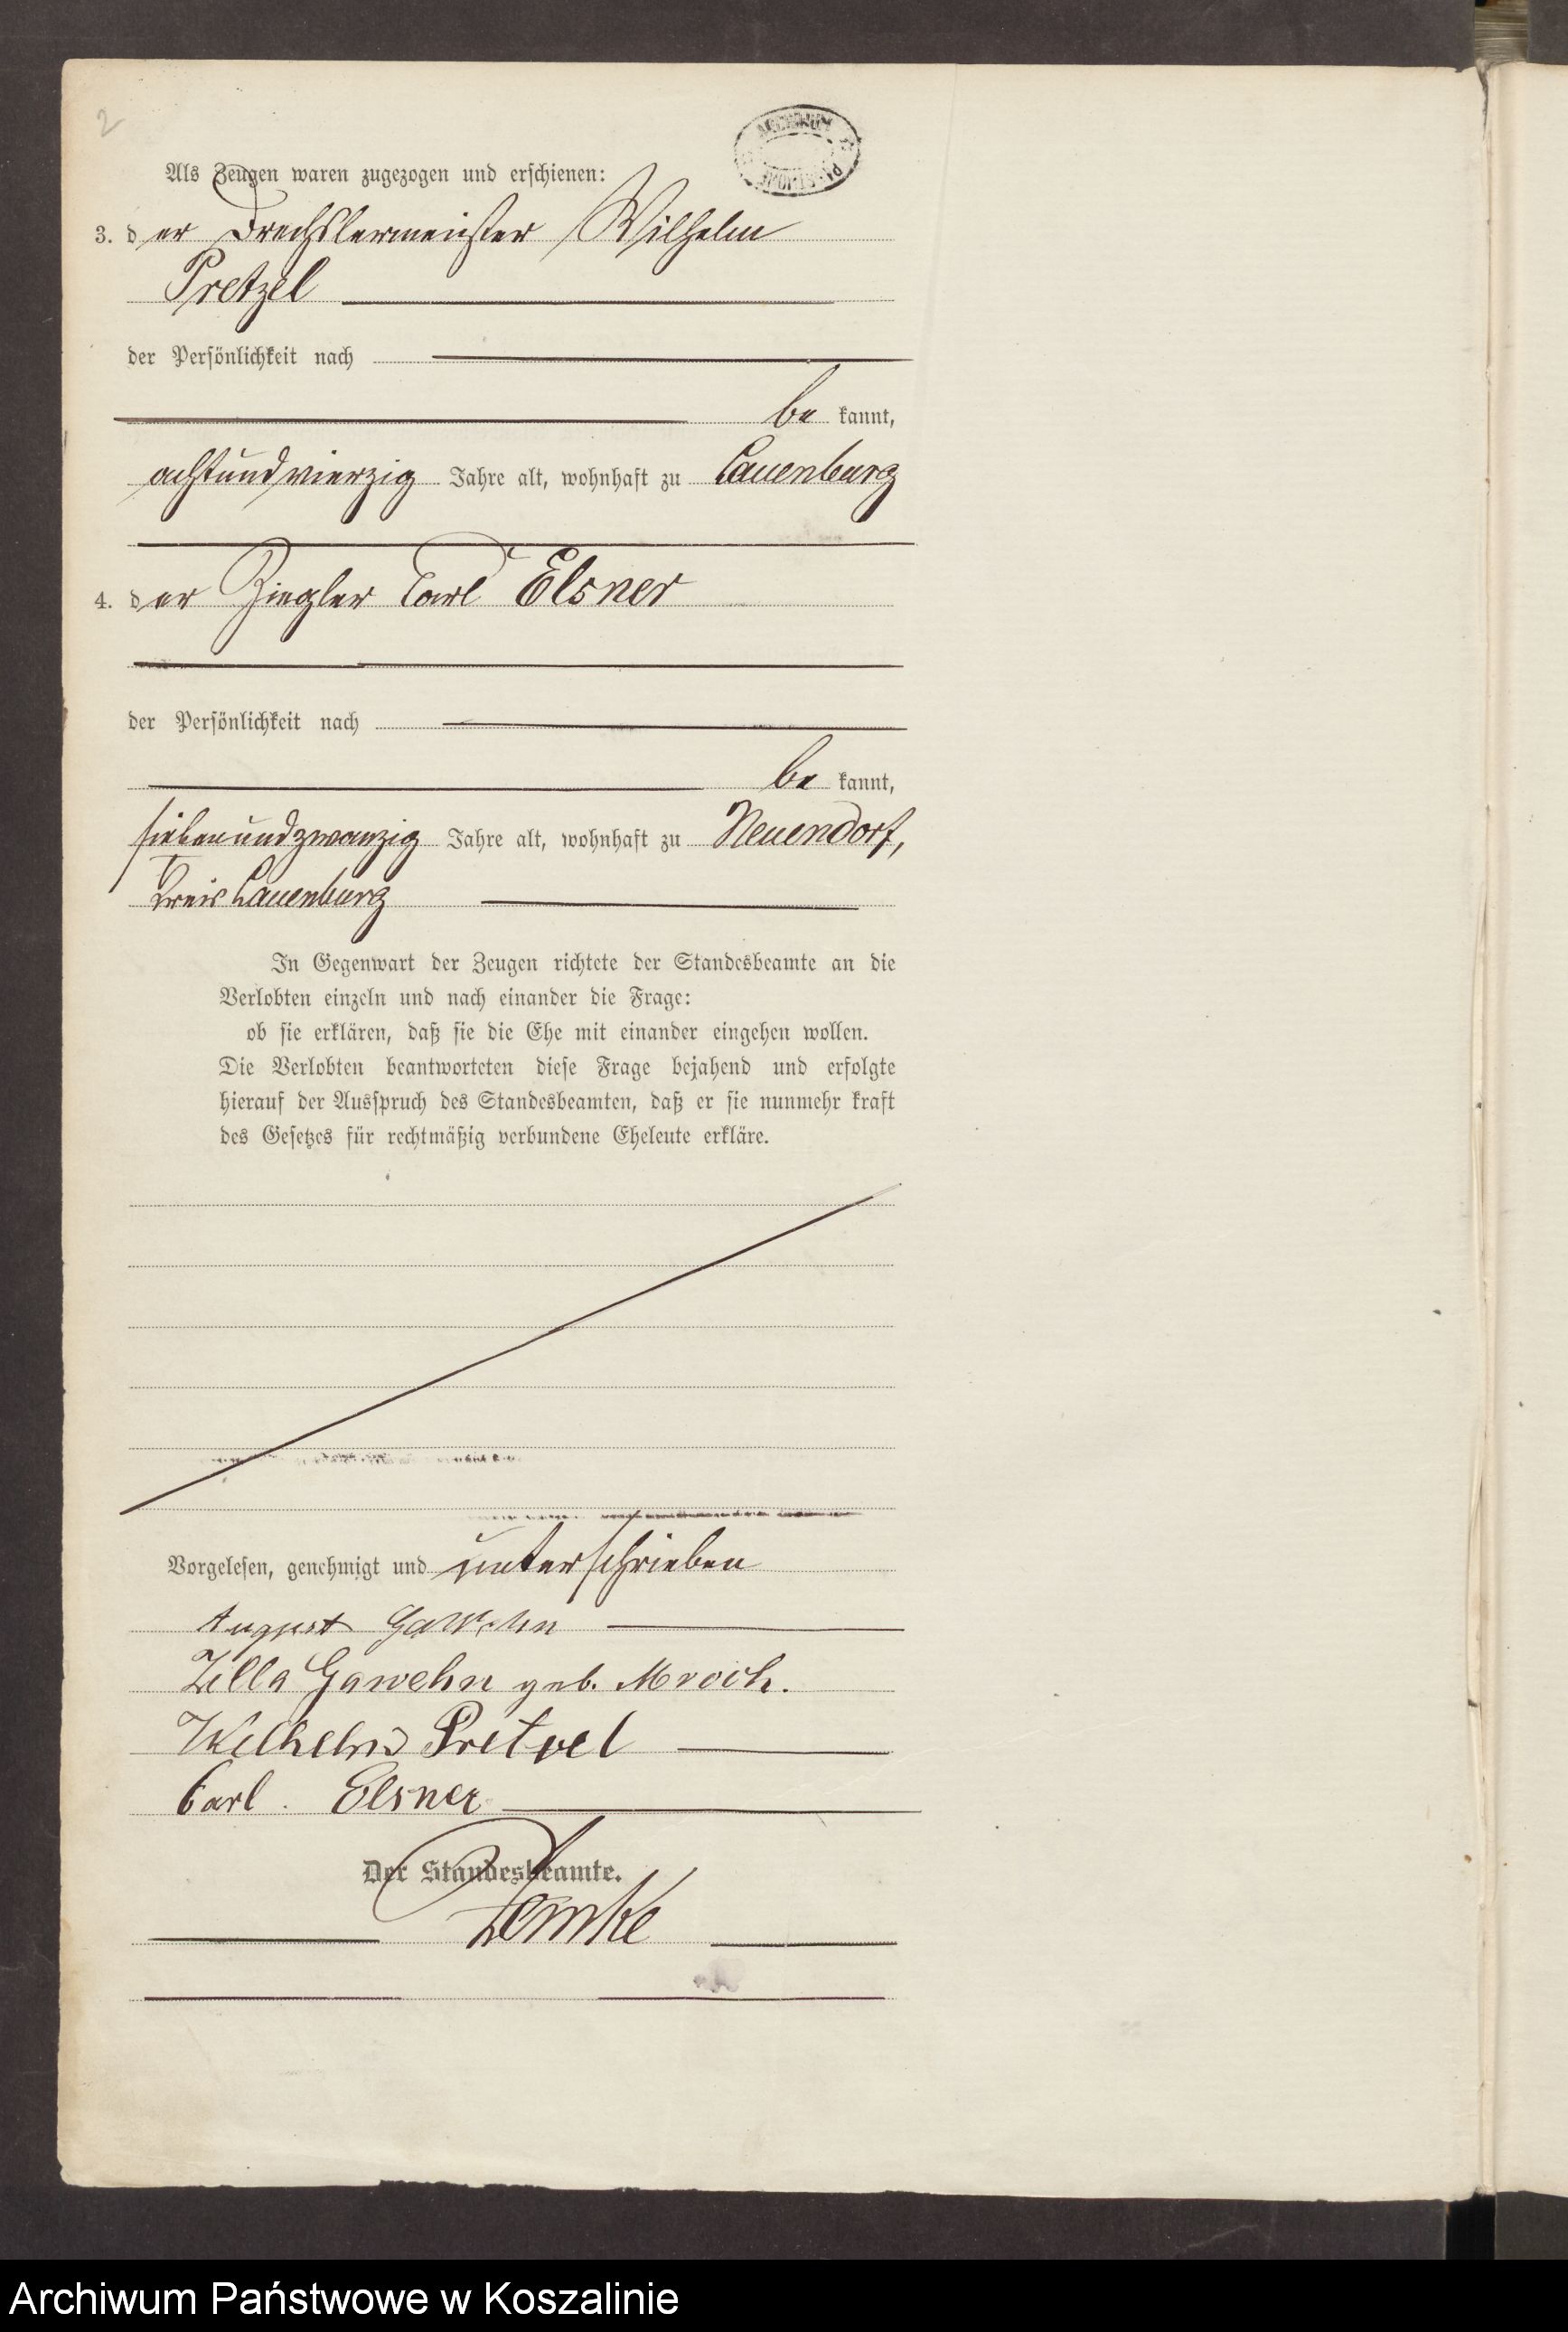 2
ARCHIWUM
Als Zeugen waren zugezogen und erschienen:
3. der Drechslermeister Wilhelm
Pretzel
der Persönlichkeit nach
be kannt,
achtundvierzig Jahre alt, wohnhaft zu Lauenburg
4. der Ziegler Carl Elsner
der Persönlichkeit nach
be kannt,
siebenundzwanzig Jahre alt, wohnhaft zu Neuendorf,
Kreis Lauenburg
In Gegenwart der Zeugen richtete der Standesbeamte an die
Verlobten einzeln und nach einander die Frage:
ob sie erklären, daß sie die Ehe mit einander eingehen wollen.
Die Verlobten beantworteten diese Frage bejahend und erfolgte
hierauf der Ausspruch des Standesbeamten, daß er sie nunmehr kraft
des Gesetzes für rechtmäßig verbundene Eheleute erkläre.
Vorgelesen, genehmigt und unterschrieben
August Gawehn
Zilla Gawehn geb. Mroch.
Wilhelm Pretzel
Carl Elsner
Der Standesbeamte.
Zemke
Archiwum Państwowe w Koszalinie